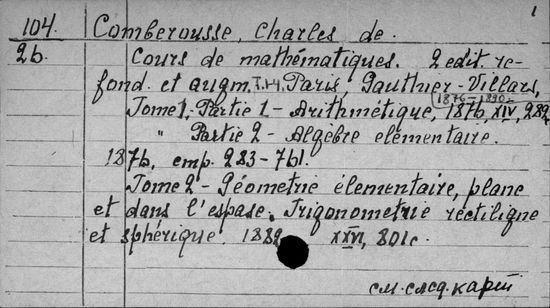 1
104. Comberousse, Charles de.
2b. Cours de mathématiques. 2 edit. re-
fond. et augm. T. I-II. Paris, Gauthier-Villars,
1876-1890-
Tome 1, Partie 1 - Arithmétique, 1876, XIV, 282
" Partie 2 - Algèbre elementaire.
1876, стр. 283-761.
Tome 2 - Géometrie élementaire, plane
et dans l'espase. Trigonometrie rectiligne
et sphérique. 1882 XXVI, 801 с.
см. след. карт